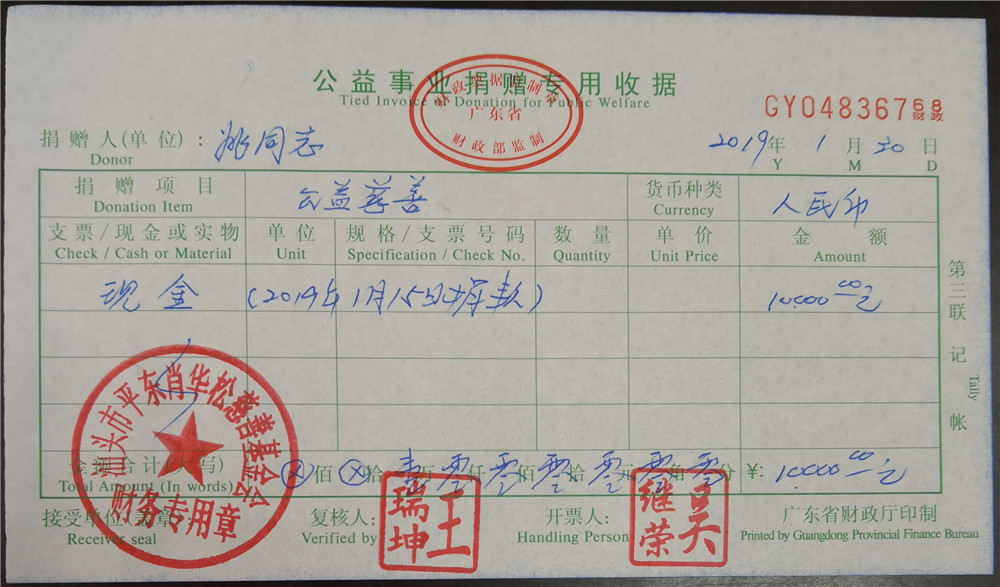 公益事业捐赠专用收据
Tied Invoice Donation for Public Welfare
财政部监制
广东省
GY04836768
财政
捐赠人(单位): 姚同志
Donor
2019年 1月 30日
Y M D
捐赠项目 公益慈善 货币种类 人民币
Donation Item Currency
支票/现金或实物 单位 规格/支票号码 数量 单价 金额
Check / Cash or Material Unit Specification / Check No. Quantity Unit Price Amount
现金 (2019年1月15日 款) 10000 00元
第三联 记帐
Tally
汕头市平东肖华松慈善基金会
财务专用章
金额合计 写) ⊗佰⊗拾壹万零仟零佰零拾零元零角零分 ¥: 10000 00元
Total Amount (In words)
接受单位(盖章): 复核人: 王瑞坤 开票人: 吴继荣 广东省财政厅印制
Receiver seal Verified by Handling Person Printed by Guangdong Provincial Finance Bureau